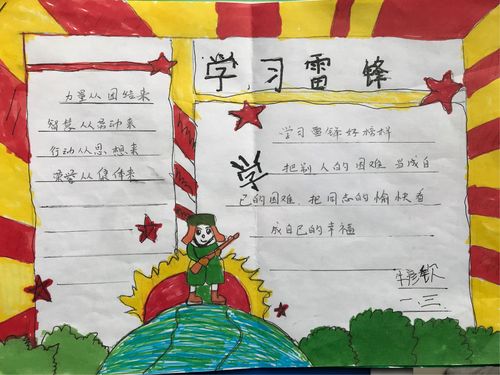 学习雷锋
力量从团结来
智慧从劳动来
行动从思想来
荣誉从集体来
学习雷锋好榜样
学
把别人的困难当成自
己的困难，把同志的愉快看
成自己的幸福
一.三.